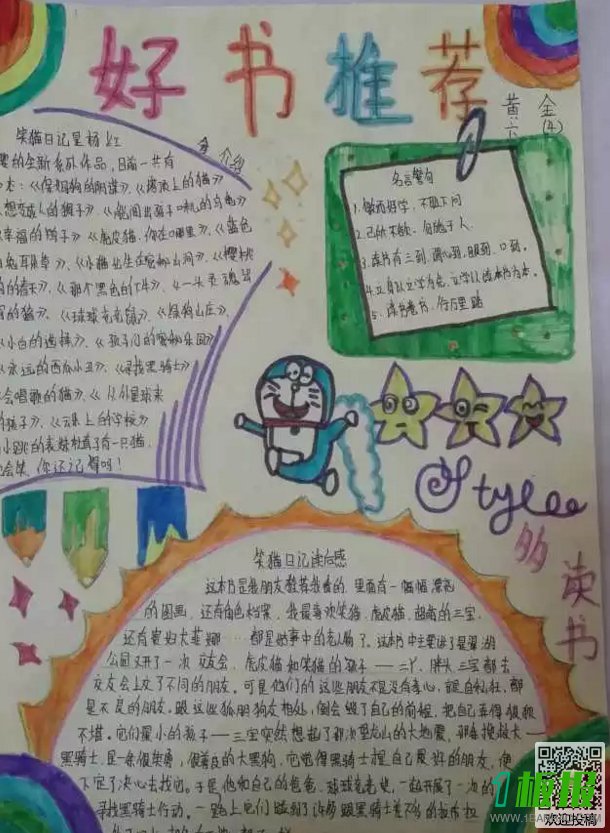 好书推荐
黄六
金(4)
笑猫日记是杨红
介绍
的全新系列作品,目前一共有
本:《保姆狗的阴谋》、《塔顶上的猫》
想变成人的猴子》、《能闻出孩子味儿的乌龟》
幸福的鸭子》、《虎皮猫,你在哪里》、《蓝色
兔耳朵草》、《小猫出生在秘密山洞》、《樱桃
的春天》、《那个黑色的下午》、《一头灵魂出
窍的猪》、《球球老老鼠》、《绿狗山庄》、
《小白的选择》、《孩子们的秘密乐园》
《永远的西瓜小丑》、《寻找黑骑士》
会唱歌的猫》、《从外星球来
的孩子》、《云朵上的学校》
小跳的表妹杜真子有一只猫,
会笑,你还记得吗!
名言警句
1、敏而好学,不耻下问
2、己所不欲,勿施于人
3、读书有三到,谓心到,眼到,口到。
4、立身以立学为先,立学以读书为本。
5、读万卷书,行万里路
Style
多读书
笑猫日记读后感
这本书是我朋友推荐我看的,里面有一幅幅漂亮
的图画,还有角色档案,我最喜欢笑猫,虎皮猫,
的三宝,
都是故事中的
了。这本书中主要讲了翠湖
公园又开了一次交友会,虎皮猫和笑猫的孩子——二丫、胖头、三宝都去
交友会上交了不同的朋友。可是他们的这些朋友不是没有孝心,就是自私狂,都
是不良的朋友。跟这些狐朋狗友相处,倒会毁了自己的前程,把自己弄得狼狈
不堪。它们最小的孩子——三宝突然想起了那次
的大地震,
黑骑士,是一条很英勇,很善良的大黑狗。它觉得黑骑士是自己最好的朋友,便
下定了决心去找它。于是,他和自己的爸爸、球球老老鼠,一起开展了一次的
寻找黑骑士行动。一路上它们碰到了许多跟黑骑士差不多的
1BANBAO
WWW.1BAN
欢迎投稿